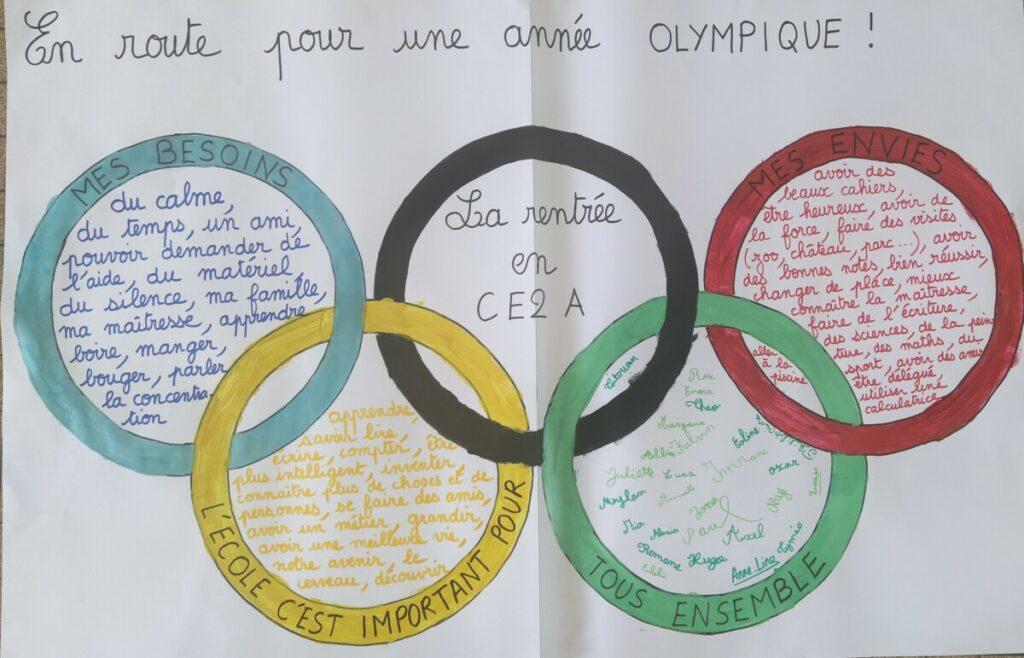 En route pour une année OLYMPIQUE !
MES BESOINS
du calme,
du temps, un ami,
pouvoir demander de
l'aide, du matériel,
du silence, ma famille,
ma maîtresse, apprendre
boire, manger,
bouger, parler
la concentra-
tion
La rentrée
en
CE2 A
MES ENVIES
avoir des
beaux cahiers,
être heureux, avoir de
la force, faire des visites
(zoo, château, parc...), avoir
des bonnes notes, bien réussir,
changer de place, mieux
connaître la maîtresse,
faire de l'écriture,
des sciences, de la pein-
ture, des maths, du
sport, avoir des amis
être délégué,
utiliser une
calculatrice
aller
à la
piscine
L'ÉCOLE C'EST IMPORTANT POUR
apprendre,
savoir lire,
écrire, compter, être
plus intelligent, inventer,
connaître plus de choses et de
personnes, se faire des amis,
avoir un métier, grandir,
avoir une meilleure vie,
notre avenir, le
cerveau, découvrir
TOUS ENSEMBLE
Rose
Enora
Théo
Margaux
Eline
Juliette
Luna
Imrane
oscar
Maylan
Paul
Mia
Alexis
Axel
Romane
Hugo
Anne-Lina
Tyméo